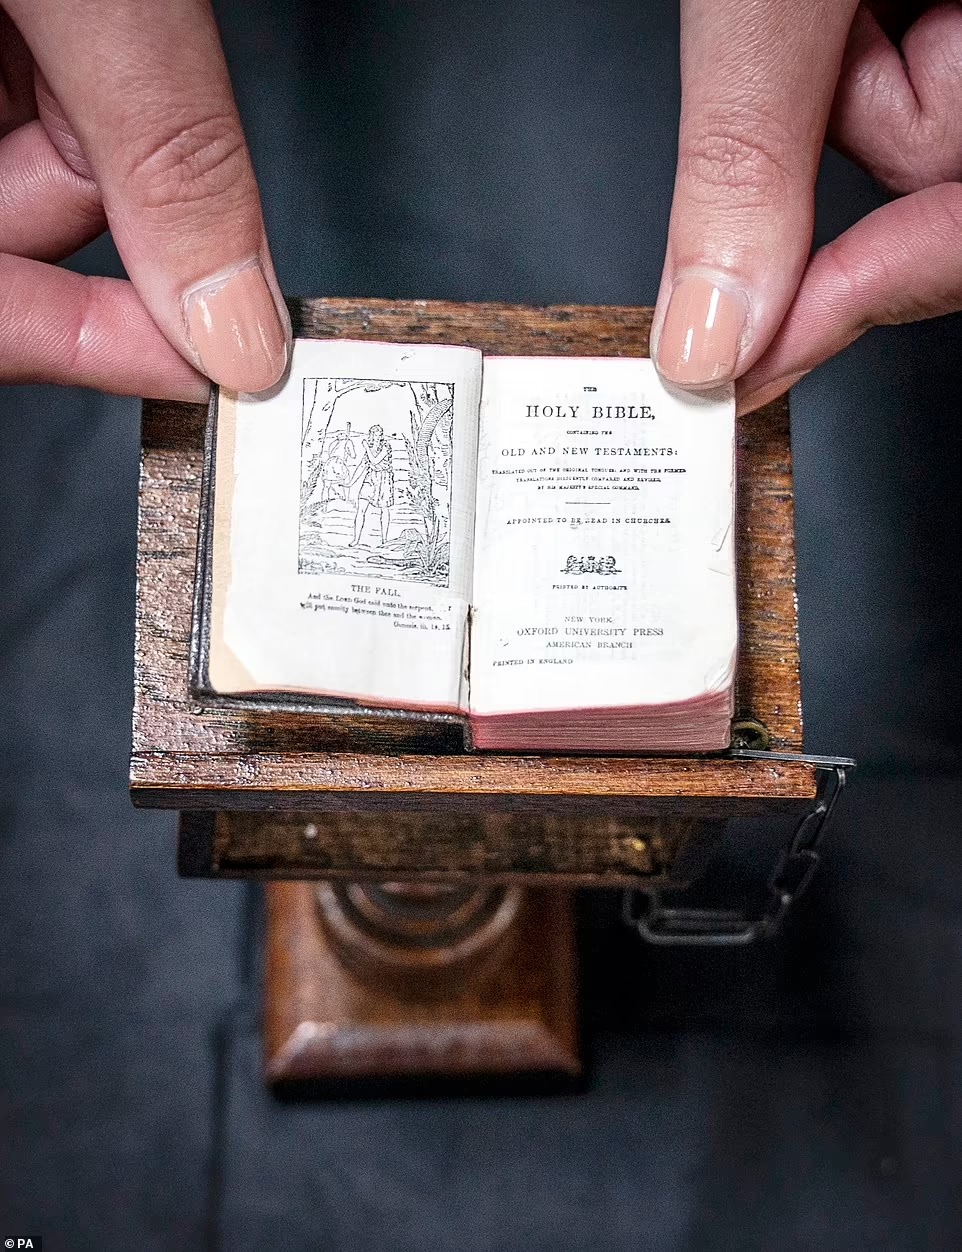 THE FALL.
And the LORD God said unto the serpent, I
will put enmity between thee and the woman.
Genesis, iii, 14, 15.
THE
HOLY BIBLE,
CONTAINING THE
OLD AND NEW TESTAMENTS:
TRANSLATED OUT OF THE ORIGINAL TONGUES; AND WITH THE FORMER
TRANSLATIONS DILIGENTLY COMPARED AND REVISED,
BY HIS MAJESTY'S SPECIAL COMMAND.
APPOINTED TO BE READ IN CHURCHES.
PRINTED BY AUTHORITY
NEW YORK
OXFORD UNIVERSITY PRESS
AMERICAN BRANCH
PRINTED IN ENGLAND
© PA